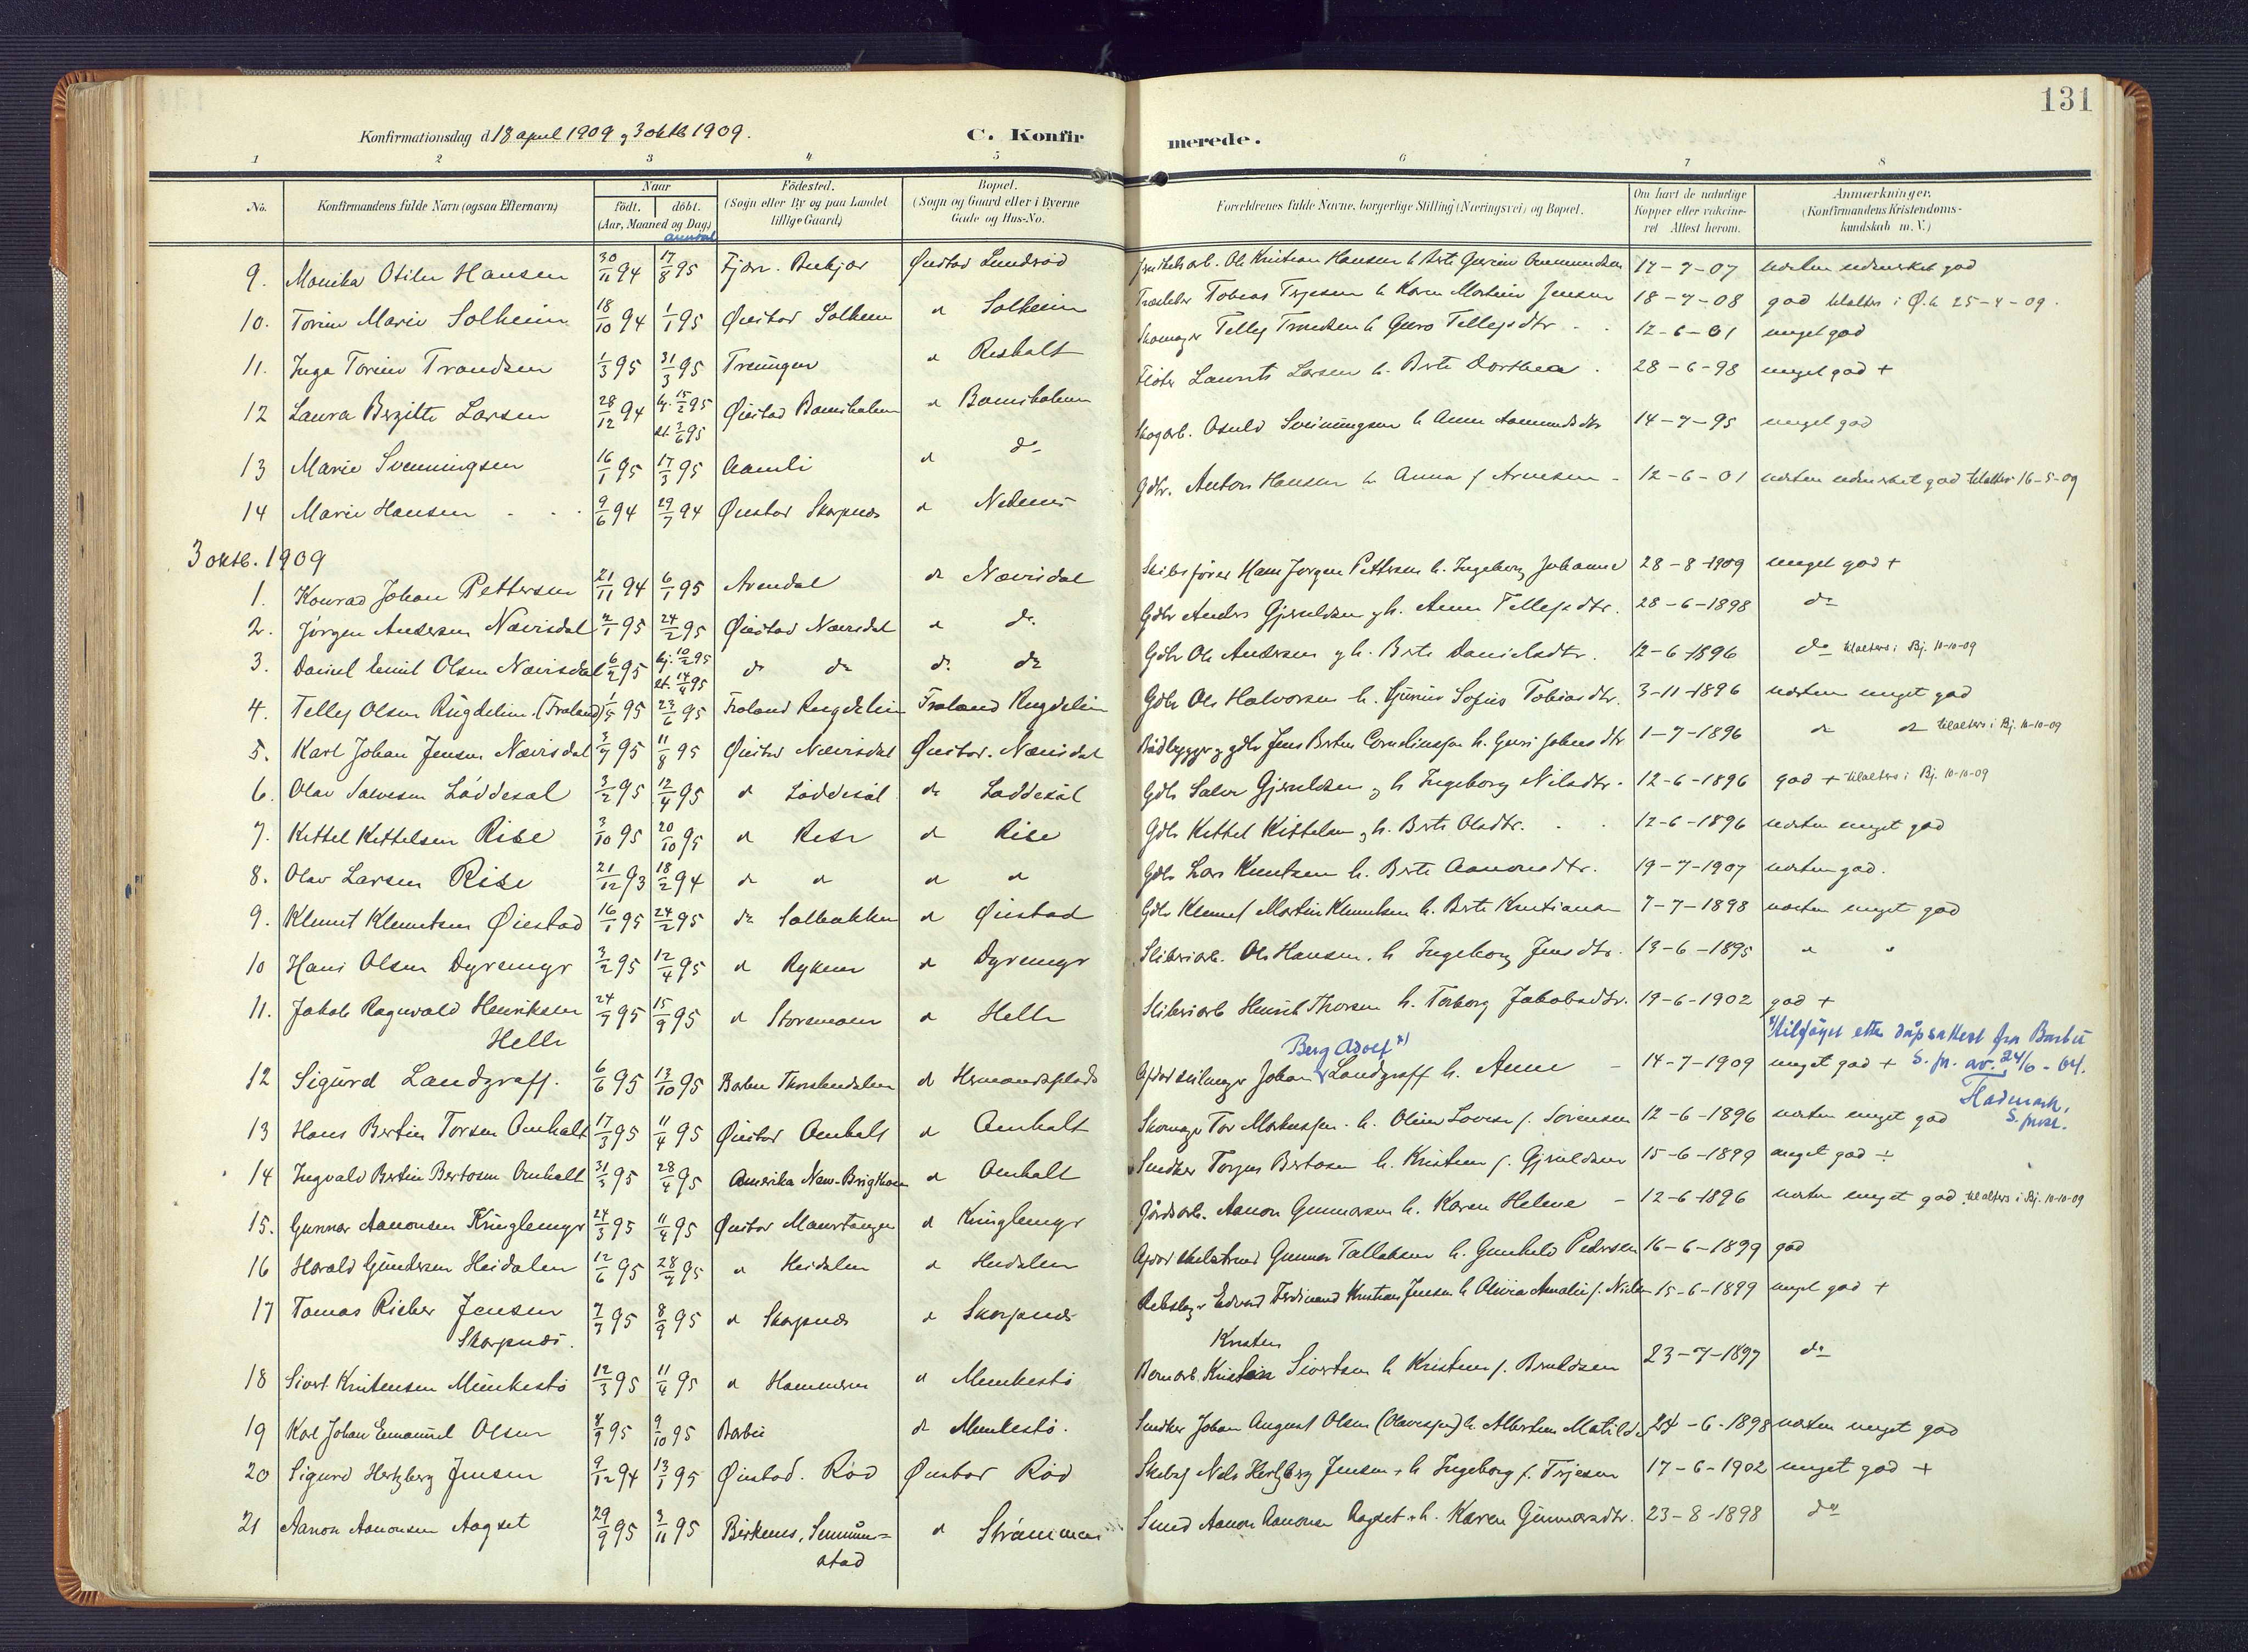 131
Konfirmationsdag d. 18 april 1909 og 3 oktb 1909.
C. Konfirmerede.
1 2 3 4 5 6 7 8
No. Konfirmandens fulde Navn (ogsaa Efternavn) Naar födt. döbt. (Aar, Maaned og Dag) Födested. (Sogn eller By og paa Landet tillige Gaard) Bopæl. (Sogn og Gaard eller i Byerne Gade og Hus-No. Forældrenes fulde Navne, borgerlige Stilling (Næringsvei) og Bopæl. Om havt de naturlige Kopper eller vakcineret Attest herom. Anmærkninger. (Konfirmandens Kristendomskundskab m. V.)
Arendal
9. Monika Otilie Hansen 30/11 94 17/8 95 Fjære. Øiestad Lundrød Ole Kristian Hansen h. Berte 17-7-07 næsten udmerket god
10. Torine Marie Solheim 18/10 94 1/1 95 Øiestad Solheim do Solheim Tobias Terjesen h. Karen Martine Jensen 18-7-08 god tilalters i Ø.k. 25-4-09.
11. Inga Torine Trondsen 1/3 95 31/3 95 Treungen do Reshalt Skomager Tellef Trondsen h. Guro Tellefsdtr. 12-6-01 meget god
12 Laura Bergitte Larsen 28/12 94 hj. 15/2 95 st. 3/6 95 Øiestad Bomsholmen do Bomsholmen Laurits Larsen h. Berte Dorthea. 28-6-98 meget god +
13 Marie Svenningsen 16/1 95 17/3 95 Aamli do do Skogarb. Osuld Sveinungsen h. Anne Aamundsdtr 14-7-95 meget god
14 Marie Hansen 9/6 94 29/7 94 Øiestad Skarpnæs do Nedenes Gdbr. Anton Hansen h. Anna f. Arnesen 12-6-01 næsten udmerket god tilalters 16-5-09
3 oktb. 1909
1. Konrad Johan Pettersen 21/11 94 6/1 95 Arendal do Nævisdal Skibsfører Hans Jørgen Pettersen h. Ingeborg Johanne 28-8-1909 meget god +
2. Jørgen Andersen Nævisdal 2/1 95 24/2 95 Øiestad Nævisdal do do. Gdbr Anders Gjeruldsen og h. Anne Tellefsdtr. 28-6-1898 do
3. Daniel Emil Olsen Nævisdal 6/2 95 hj. 10/2 95 st. 14/4 95 do do do do Gdbr Ole Andersen og h. Berte Danielsdtr. 12-6-1896 do tilalters i Bj. 10-10-09
4. Tellef Olsen Rugdelien. (Froland) 1/5 95 23/6 95 Froland Rugdelien Froland Rugdelien Gdbr Ole Halvorsen h. Gunine Sofie Tobiasdtr. 3-11-1896 næsten meget god
5. Karl Johan Jensen Nævisdal 3/7 95 11/8 95 Øiestad Nævisdal Øiestad. Nævisdal Baadbygger og gdbr Jens Bertin Corneliussen h. Guri Johnsdtr 1-7-1896 do do tilalters i Bj. 10-10-09
6. Olav Salvesen Løddesøl 3/2 95 12/4 95 do Løddesøl do Løddesøl Gdbr Salve Gjeruldsen og h. Ingeborg Nilsdtr. 12-6-1896 god + tilalters i Bj. 10-10-09
7. Kittel Kittelsen Rise 3/10 95 20/10 95 do Rise do Rise Gdbr Kittel Kittelsen og h. Berte Olsdtr. 12-6-1896 næsten meget god
8. Olav Larsen Rise 21/12 93 18/2 94 do do do do Gdbr Lars Knutsen h. Berte Aanonsdtr. 19-7-1907 næsten god.
9. Klemet Klemetsen Øiestad 16/1 95 24/2 95 do Solbakken do Øiestad Gdbr Klemet Martin Klemetsen h. Berte Kristiane 7-7-1898 næsten meget god
10 Hans Olsen Dyremyr 3/2 95 12/4 95 do Rykene do Dyremyr Sliberiarb. Ole Hansen. h. Ingeborg Jensdtr. 13-6-1895 do do
11. Jakob Ragnvald Henriksen Helle 24/7 95 15/9 95 do Storemoen do Helle Sliberiarb Henrik Thorsen h. Torborg Jakobsdtr. 19-6-1902 god +
x) tilføyet etter dåpsattest fra Barbu S.pr. av. 24/6 - 64. Flødmark, S.prest.
Berg Adolf x)
12 Sigurd Landgraff. 6/6 95 13/10 95 Barbu do Hermansplads Afdød seilmager Johan Landgraff h. Anne 14-7-1909 meget god +
13 Hans Bertin Torsen Omholt 17/3 95 11/4 95 Øiestad Omholt do Omholt Skomager Tor Markussen. h. Oline Lovise f. Sørensen 12-6-1896 næsten meget god
14 Ingvald Bertin Bertosen Omholt 31/3 95 28/4 95 Amerika New-Brigthon do Omholt Smedker Torjus Bertosen h. Kristine f. Gjeruldsen 15-6-1899 meget god ÷
15. Gunnar Aanonsen Kringlemyr 24/3 95 11/4 95 Øiestad Maurtangen do Kringlemyr Jordarb. Aanon Gunnarsen h. Karen Helene 12-6-1896 næsten meget god tilalters i Bj. 10-10-09
16 Harald Gundersen Heidalen 12/6 95 28/7 95 do Heidalen do Heidalen Afdød Gunnar Tallaksen h. Gunhild Pedersen 16-6-1899 god
17 Tomas Rieber Jensen Skarpnæs. 7/7 95 8/9 95 do Skarpnæs do Skarpnæs Rebslager Edvard Ferdinand Kristian Jensen h. Olivia Amalie f. Nielsen 15-6-1899 meget god +
Kristen
18 Sivert Kristensen Munkestø 12/3 95 11/4 95 do Hammeren do Munkestø Bomarb. Kristian Sivertsen h. Kristine f. Beruldsen 23-7-1897 do
19 Karl Johan Emanuel Olsen 4/9 95 9/10 95 Barbu do Munkestø. Smedker Johan August Olsen (Olavesen) h. Albertine Matilde 24-6-1898 næsten meget god
20 Sigurd Hertzberg Jensen 9/12 94 13/1 95 Øiestad. Rød Øiestad Rød Skibsf Nels Hertzberg Jensen h. Ingeborg f. Terjesen 17-6-1902 meget god +
21 Aanon Aanonsen Aagset 29/9 95 3/11 95 Birkenes, Senumstad do Strømmen Smed Aanon Aanonsen Aagset h. Karen Gunnarsdtr. 23-8-1898 do